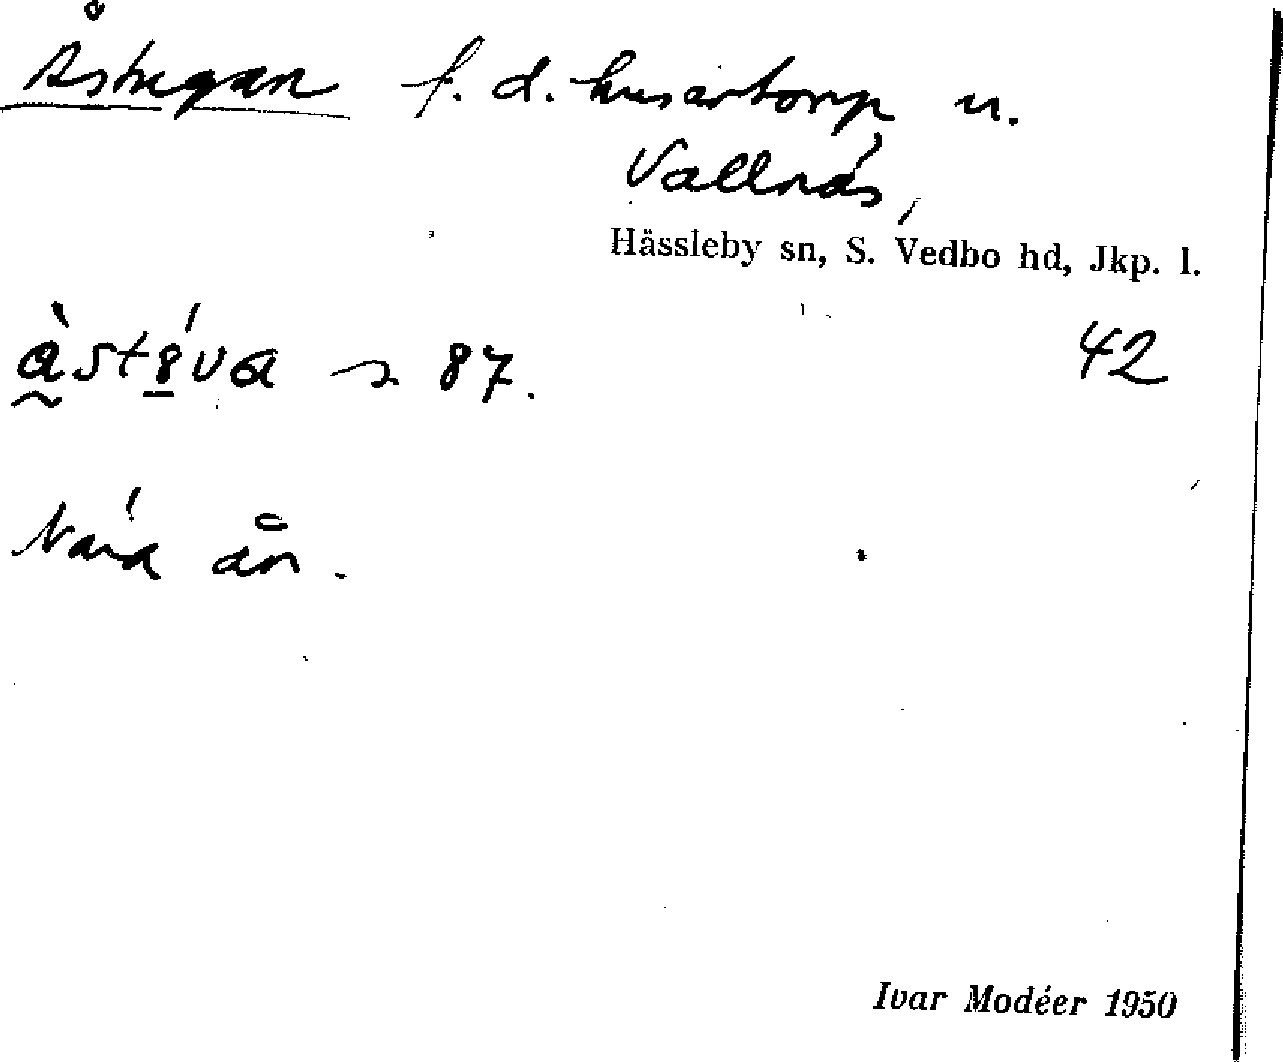 Åstugan f. d. husartorp u.
Vallnäs,
Hässleby sn, S. Vedbo hd, Jkp. l.
42
87.
Nära ån.
Ivar Modéer 1950